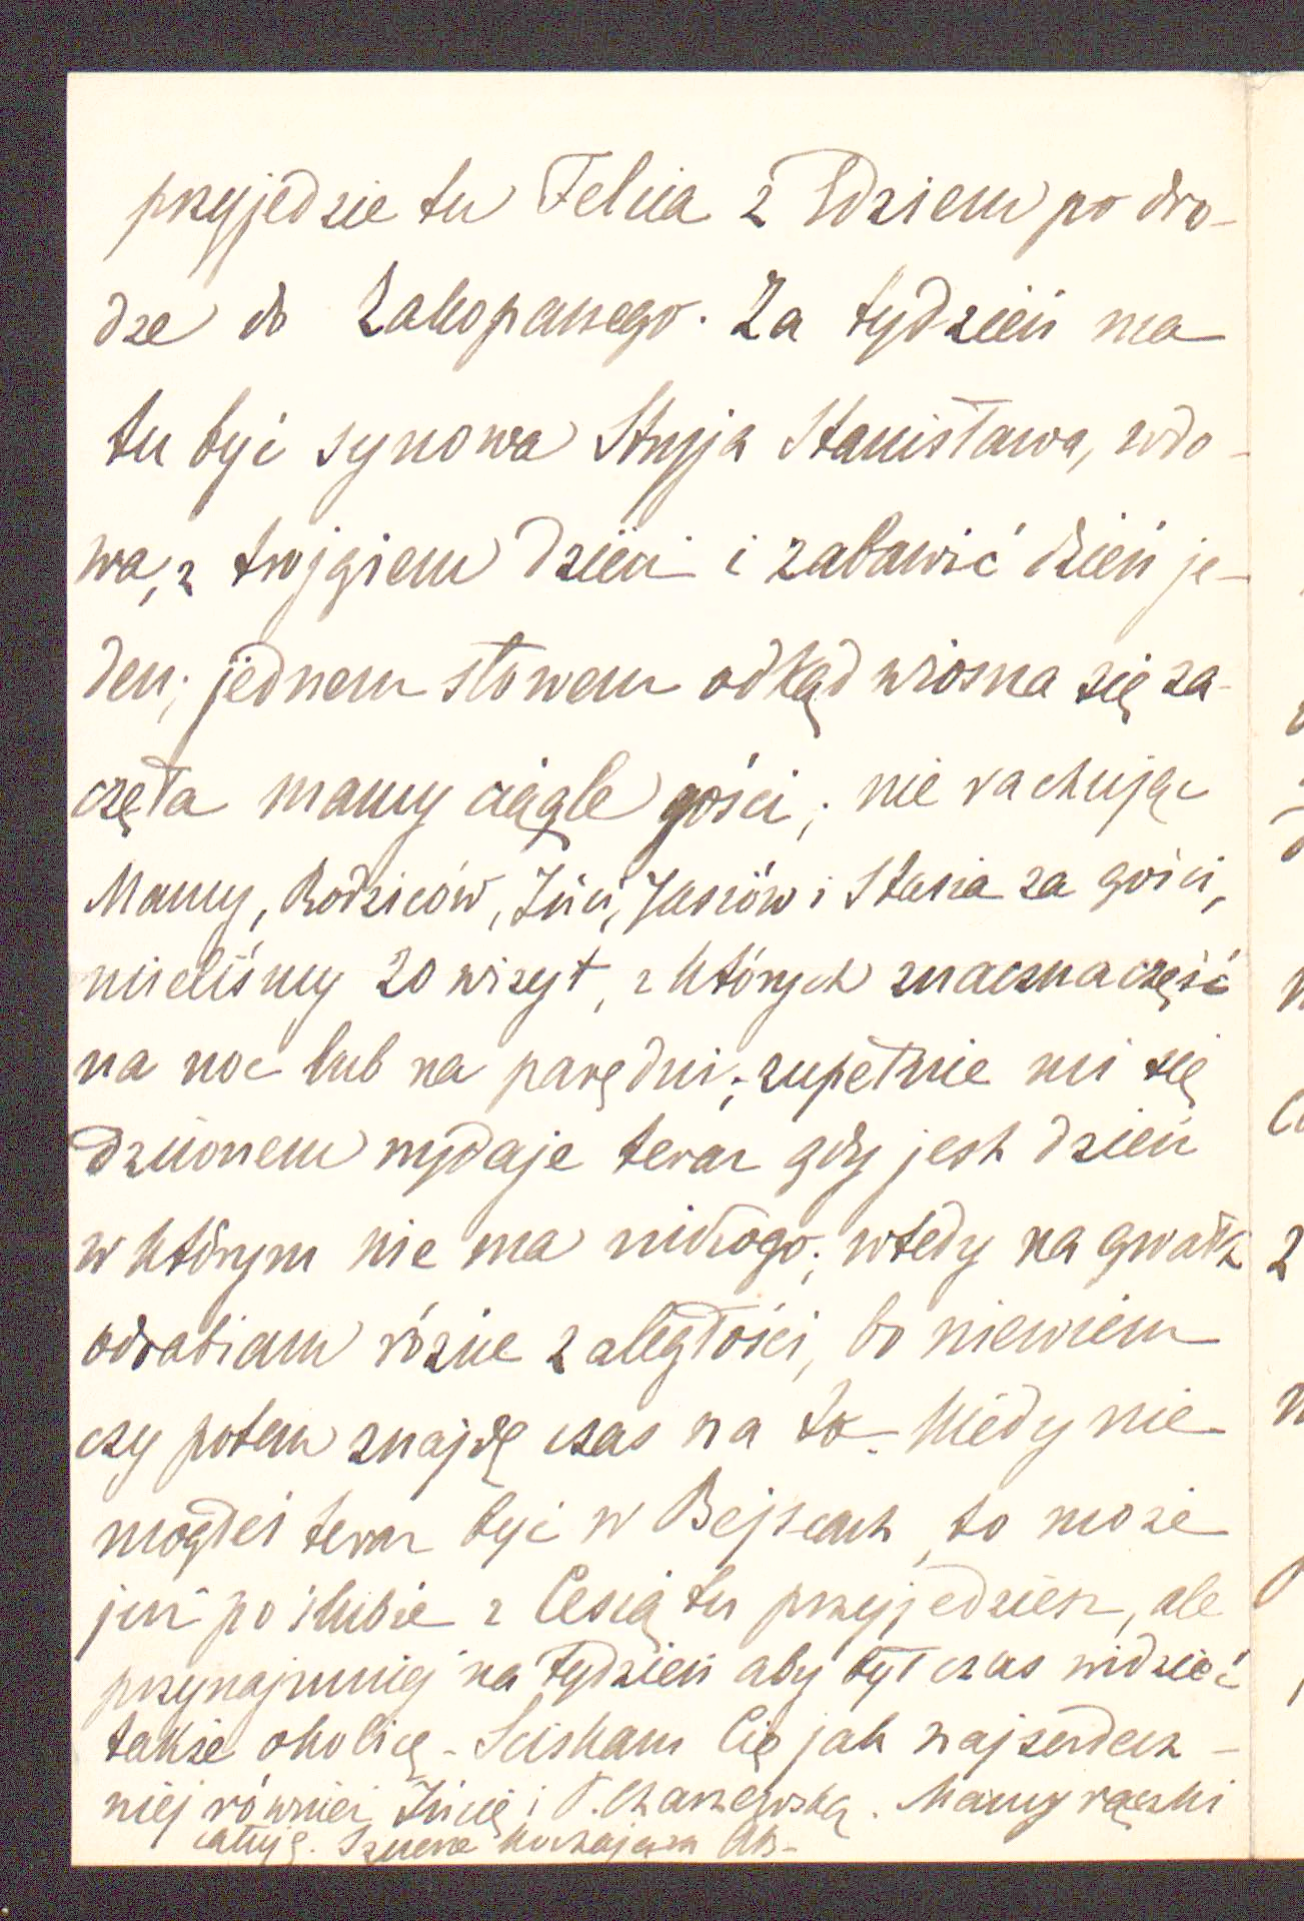 przyjedzie tu Felicia z Idziem po dro-
dze do Zakopanego. Za tydzień ma
tu być synowa Stryja Stanisława, wdo-
wa, z trojgiem dzieci i zabawić dzień je-
den; jednem słowem odkąd wiosna się za-
częła mamy ciągle gości; nie rachując
Mamy, Rodziców, Józi, Jasiów i Stasia za gości,
mieliśmy 20 wizyt, z których znaczna część
na noc lub na parę dni; zupełnie mi się
dziwnem wydaje teraz gdy jest dzień
w którym nie ma nikogo; wtedy na gwałt
odrabiam różne zaległości, bo niewiem
czy potem znajdę czas na to. Kiedy nie
mogłeś teraz być w Bejscach, to może
już po ślubie z Cesią tu przyjedziesz, ale
przynajmniej na tydzień aby był czas widzieć
także okolicę. Ściskam Cię jak najserdecz-
niej również Józię i P. . Mamy rączki
całuję. Szczerze kochająca